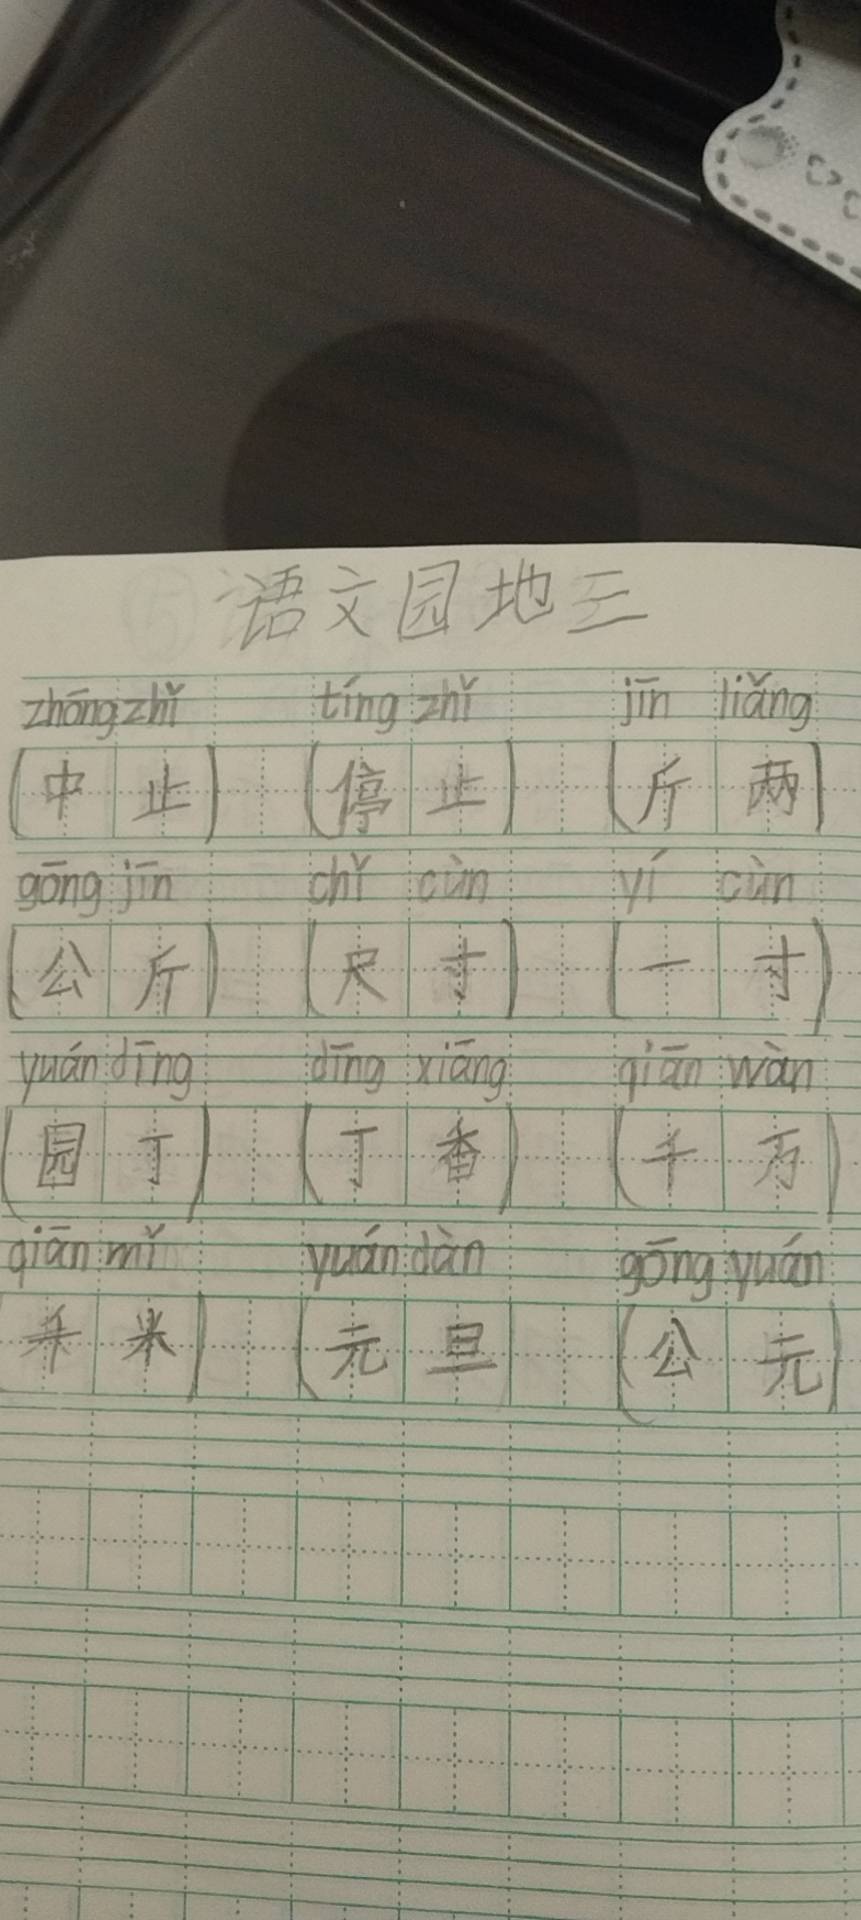 语文园地三
zhōng zhǐ tíng zhǐ jīn liǎng
(中止) (停止) (斤两)
gōng jīn chǐ cùn yí cùn
(公斤) (尺寸) (一寸)
yuán dīng dīng xiāng qiān wàn
(园丁) (丁香) (千万)
qiān mǐ yuán dàn gōng yuán
千米) (元旦 (公元)